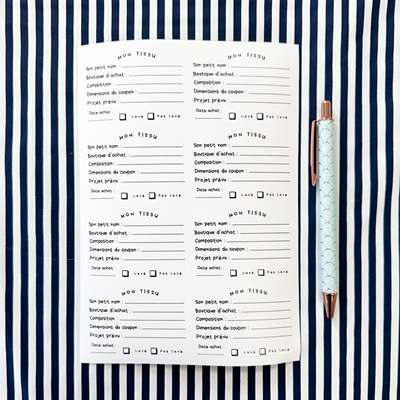 MON TISSU
Son petit nom :
Boutique d'achat :
Composition :
Dimensions du coupon :
Projet prévu :
Date achat :
Lavé Pas lavé
MON TISSU
Son petit nom :
Boutique d'achat :
Composition :
Dimensions du coupon :
Projet prévu :
Date achat :
Lavé Pas lavé
MON TISSU
Son petit nom :
Boutique d'achat :
Composition :
Dimensions du coupon :
Projet prévu :
Date achat :
Lavé Pas lavé
MON TISSU
Son petit nom :
Boutique d'achat :
Composition :
Dimensions du coupon :
Projet prévu :
Date achat :
Lavé Pas lavé
MON TISSU
Son petit nom :
Boutique d'achat :
Composition :
Dimensions du coupon :
Projet prévu :
Date achat :
Lavé Pas lavé
MON TISSU
Son petit nom :
Boutique d'achat :
Composition :
Dimensions du coupon :
Projet prévu :
Date achat :
Lavé Pas lavé
MON TISSU
Son petit nom :
Boutique d'achat :
Composition :
Dimensions du coupon :
Projet prévu :
Date achat :
Lavé Pas lavé
MON TISSU
Son petit nom :
Boutique d'achat :
Composition :
Dimensions du coupon :
Projet prévu :
Date achat :
Lavé Pas lavé